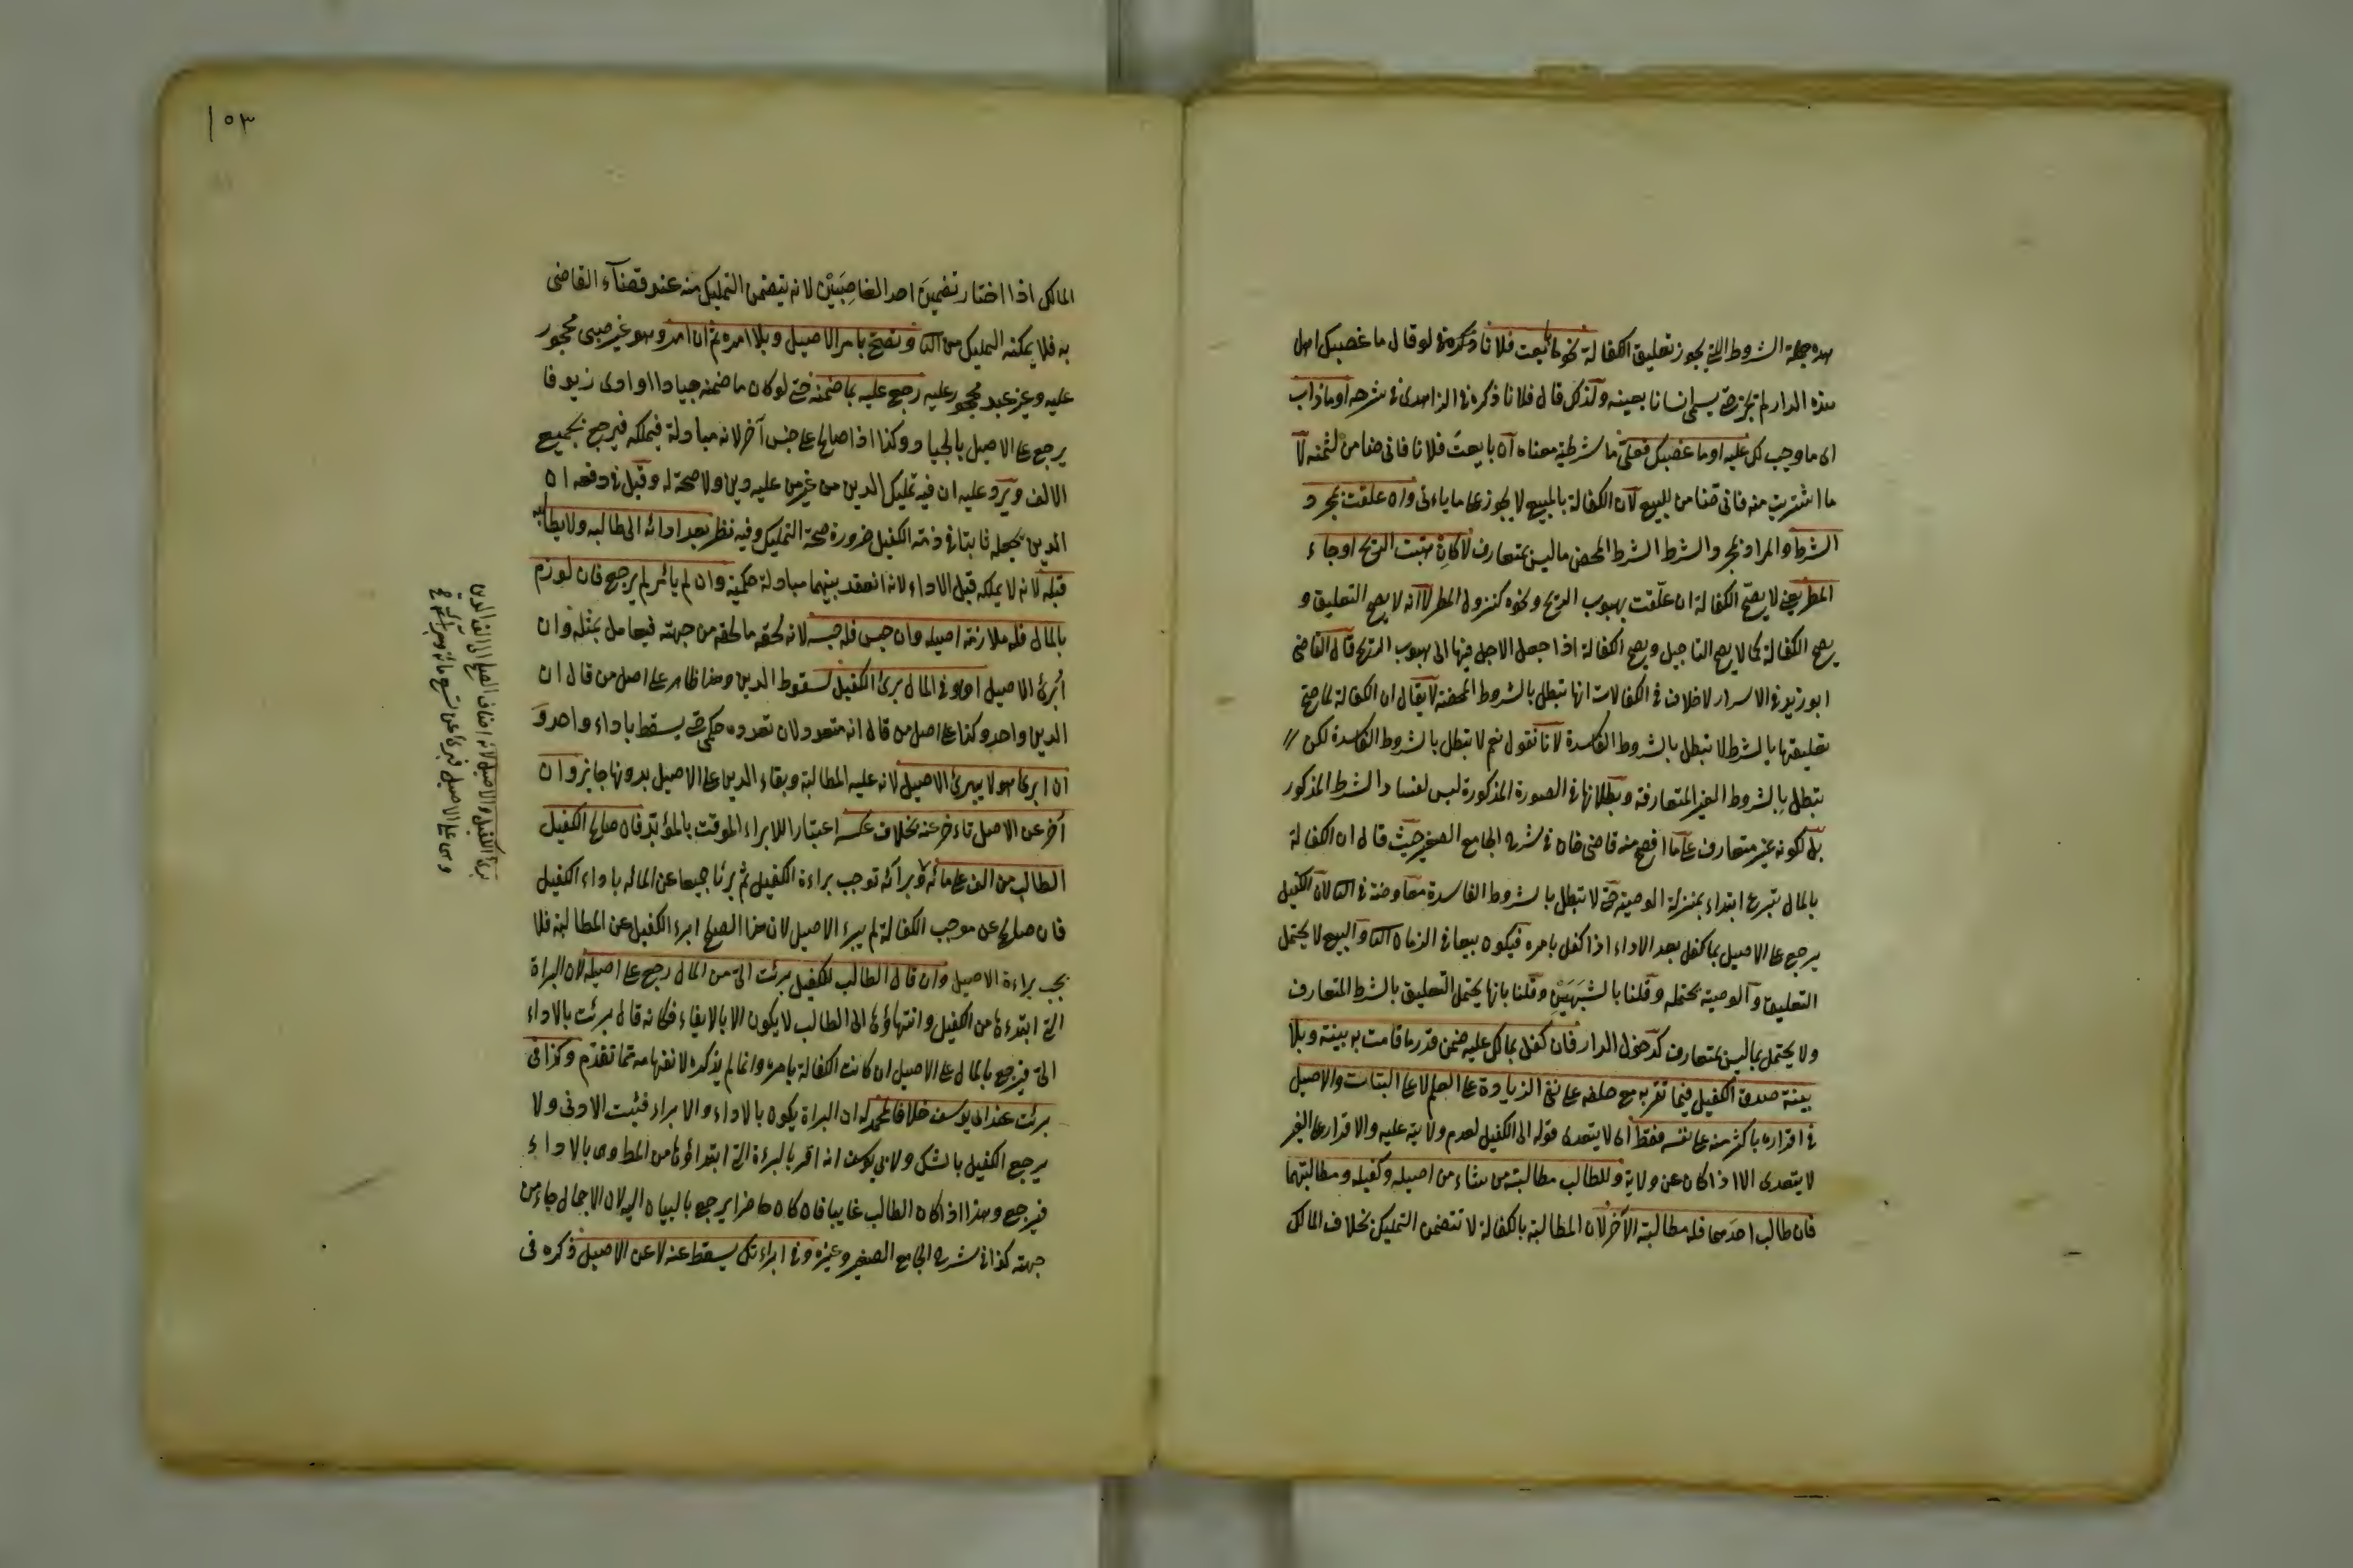 هذه جملة الشروط التي يجوز تعليق الكفالة نحو ما بايعت فلانا ذكره في لو قال ما غصبك اهل
هذه الدار لم يجز حتى يسمى انسانا بعينه ولذلك قال فلانا ذكره الزاهدى في شرحه او ما ذاب
اى ما وجب لك عليه او ما غصبك فعلى ما شرطية معناه ان بايعت فلانا فانى ضامن لثمنه لا
ما اشتريت منه فانى ضامن للبيع لان الكفالة بالمبيع لا يجوز على ما ياءتى وان علقت بمجرد
الشرط والمراد بمجرد الشرط الشرط المحض ما ليس بمتعارف لا كان هبت الريح او جاء
المطر يعنى لا يصح الكفالة ان علقت بهبوب الريح ونحوه كنزول المطر لا انه لا يصح التعليق و
يصح الكفالة كما لا يصح التاجيل ويصح الكفالة اذا جعل الاجل فيها الى هبوب الريح قال القاضى
ابو زيد في الاسرار لا خلاف في الكفالات انها تبطل بالشروط المحضة لا يقال ان الكفالة لما صح
تعليقها بالشرط لا تبطل بالشروط الفاسدة لانا نقول نعم لا تبطل بالشروط الفاسدة لكن
تبطل بالشروط الغير المتعارفة وبطلانها في الصورة المذكورة ليس لفساد الشرط المذكور
بل لكونه غير متعارف على ما افصح منه قاضى خان في شرح الجامع الصغير حيث قال ان الكفالة
بالمال تبرع ابتداء بمنزلة الوصية حتى لا تبطل بالشروط الفاسدة معاوضة في لان الكفيل
يرجع على الاصيل بما كفل بعد الاداء اذا كفل بامره فيكون بيعا في الزمان والبيع لا يحتمل
التعليق والوصية يحتمله وقلنا بالشبهين وقلنا بانها يحتمل التعليق بالشرط المتعارف
ولا يحتمل بما ليس بمتعارف كدخول الدار فان كفل بما لك عليه ضمن قدر ما قامت به بينة وبلا
بينة صدق الكفيل فيما تقر به مع حلفه على نفى الزيادة على العلم لا على البتات والاصيل
في اقراره باكثر منه على نفسه فقط اى لا يتعدى قوله الى الكفيل لعدم ولايته عليه والاقرار على الغير
لا يتعدى الا اذا كان عن ولاية وللطالب مطالبة من شاء من اصيله وكفيله ومطالبتهما
فان طالب احدهما فله مطالبة الآخر لان المطالبة بالكفالة لا تتضمن التمليك بخلاف المالك
١٥٣
المالك اذا اختار تضمين احد الغاصبين لانه يتضمن التمليك منه عند قضآء القاضى
به فلا يمكنه التمليك من وتصح بامر الاصيل وبلا امره ثم ان امره وهو غير صبى محجور
عليه وغير عبد محجور عليه رجع عليه بما ضمنه حتى لو كان ما ضمنه جيادا وادى زيوفا
يرجع على الاصيل بالجياد وكذا اذا صالح على جنس آخر لانه مبادلة فيملكه فيرجع بجميع
الالف ويرد عليه ان فيه تمليك الدين من غير من عليه دين ولا صحة له وقيل في دفعه ان
الدين يجعله ثابتا في ذمة الكفيل ضرورة صحة التمليك وفيه نظر بعد ادائه الى طالبه ولا يطالبه
قبله لانه لا يملكه قبل الاداء لانه انعقد بينهما مبادلة حكمية وان لم يائمر لم يرجع فان لوزم
بالمال فله ملازمة اصيله وان حبس فله حبسه لانه لحقه ما لحقه من جهته فيعامل بمثله وان
ابرئ الاصيل او اوفى المال برئ الكفيل لسقوط الدين وهذا ظاهر على اصل من قال ان
الدين واحد وكذا على اصل من قال انه متعدد لان تعدده حكمى يسقط باداء واحد و
ان ابرئ هو لا يبرئ الاصيل لانه عليه المطالبة وبقاء الدين على الاصيل بدونها جايز وان
آخر عن الاصيل تاءخر عنه بخلاف عكسه اعتبارا للابراء الموقت بالمؤبد فان صالح الكفيل
الطالب من الف على مائة وبرآئه توجب براءة الكفيل ثم برئا جميعا عن المائه باداء الكفيل
فان صالح عن موجب الكفالة لم يبرء الاصيل لان هذا الصلح ابرء الكفيل عن المطالبة فلا
يجب براءة الاصيل وان قال الطالب للكفيل برئت الى من المال رجع على اصيله لان البراة
التى ابتدءها من الكفيل وانتهاؤها الى الطالب لا يكون الا بالايفاء فكانه قال برئت بالاداء
الى فيرجع بالمال على الاصيل ان كانت الكفالة بامره وانما لم يذكره لانفهامه مما تقدم وكذا في
برئت عند ابى يوسف خلافا لمحمد له ان البراة يكون بالاداء والابراء فيثبت الادنى ولا
يرجع الكفيل بالشك ولابى يوسف انه اقر بالبرءة التى ابتداؤها من المطلوب بالاداء
فيرجع وهذا اذا كان الطالب غايبا فان كان حاضرا يرجع بالبيان اليه لان الاجمال جاء من
جهته كذا في شرح الجامع الصغير وغيره وفي ابراءتك يسقط عنه لا عن الاصيل ذكره في
برئ الكفيل والاصيل لانه اضاف الصلح الى الف الدين
وهى على الاصيل فبرئ عن تسع مائة